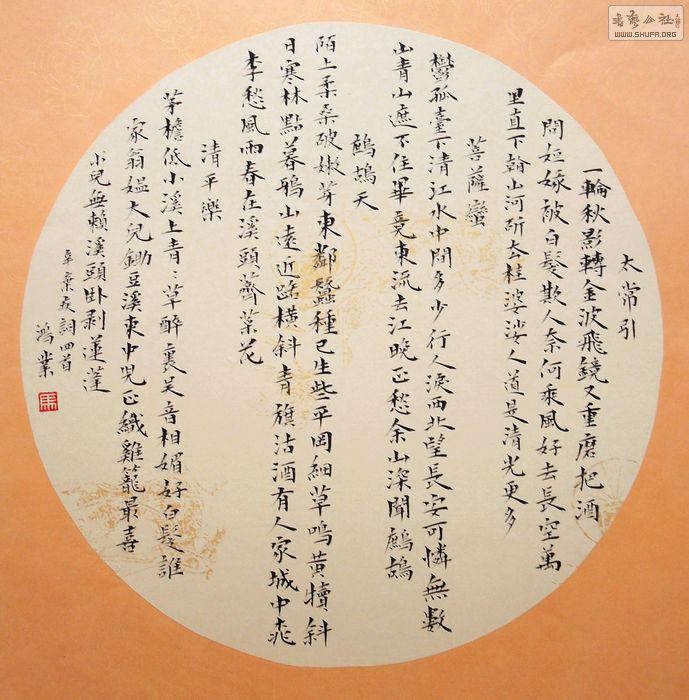 太常引
一輪秋影轉金波飛鏡又重磨把酒
問姮娥被白髮欺人奈何乘風好去長空萬
里直下翰山河斫去桂婆娑人道是清光更多
菩薩蠻
鬱孤臺下清江水中間多少行人淚西北望長安可憐無數
山青山遮不住畢竟東流去江晚正愁余山深聞鷓鴣
鷓鴣天
陌上柔桑破嫩芽東鄰蠶種已生些平岡細草鳴黃犢斜
日寒林點暮鴉山遠近路橫斜青旗沽酒有人家城中桃
李愁風雨春在溪頭薺菜花
清平樂
茅檐低小溪上青〻草醉裏吳音相媚好白髮誰
家翁媼大兒鋤豆溪東中兒正織雞籠最喜
小兒無賴溪頭臥剝蓮蓬
辛棄疾詞四首
鴻業
馬
書藝公社
WWW.SHUFA.ORG